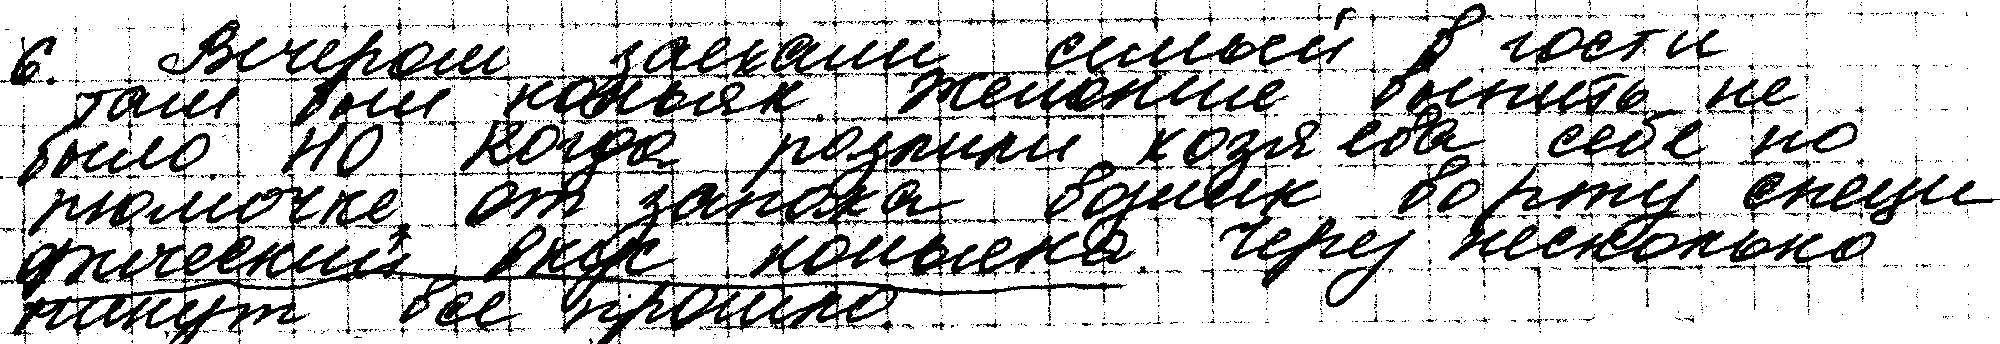 6. Вечером заехали семьей в гости
там был коньяк. Желание выпить не
было. НО когда разлили хозяева себе по
рюмочке, от запаха возник во рту специ
фический вкус коньяка. Через несколько
минут все прошло